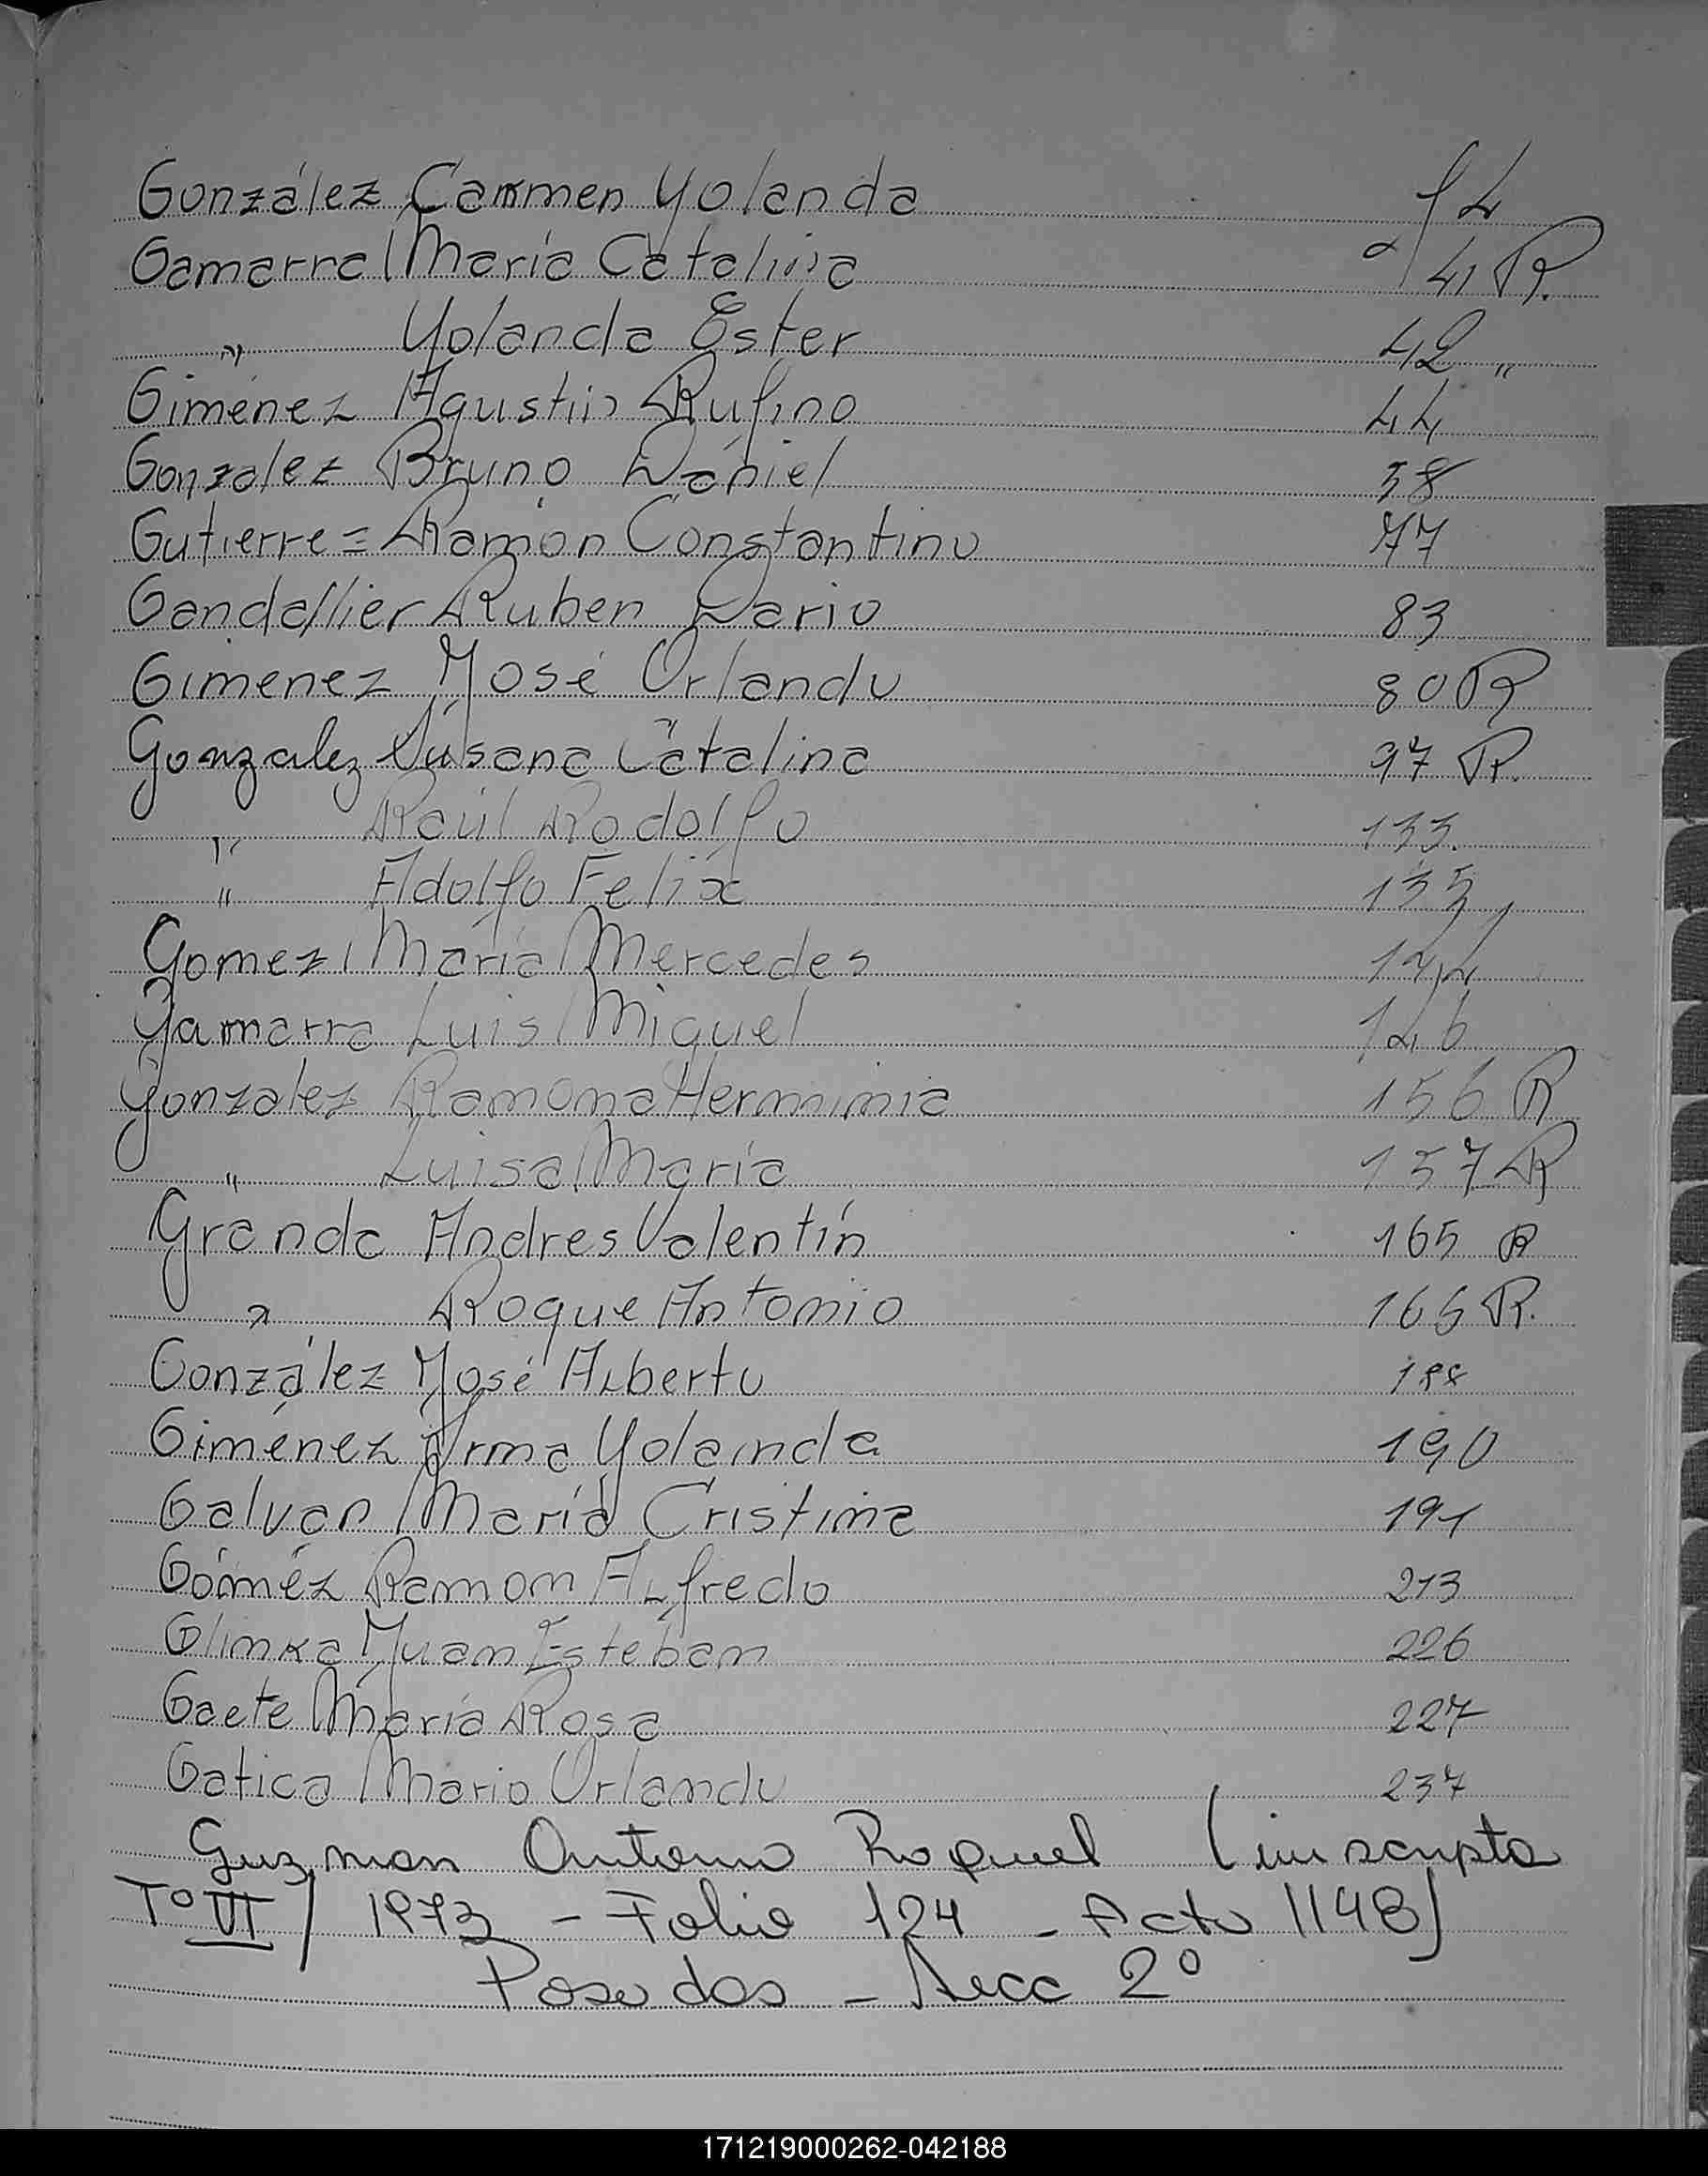 González Carmen Yolanda f 4
Gamarra Maria Catalina 41 R.
" Yolanda Ester 42 "
Giménez Agustin Rufino 44
Gonzalez Bruno Daniel 58
Gutierrez Ramón Constantino 77
Gandallier Ruben Dario 83
Gimenez José Orlando 80 R
Gonzalez Susana Catalina 97 R.
" Raúl Rodolfo 133.
" Adolfo Felix 135
Gomez Maria Mercedes 144
Gamarra Luis Miguel 146
Gonzalez Ramona Herminia 156 R
" Luisa Maria 157 R
Granda Andres Valentín 165 R
" Roque Antonio 166 R.
González José Alberto 188
Giménez Irma Yolanda 190
Galvan Maria Cristina 191
Gómez Ramon Alfredo 213
Glinka Juan Esteban 226
Gaete María Rosa 227
Gatica Mario Orlando 237
Guzman Antonio Raquel (inscripta
T° VI / 1973 - Folio 124 - Acta 1148)
Posadas - Secc 2°
171219000262-042188